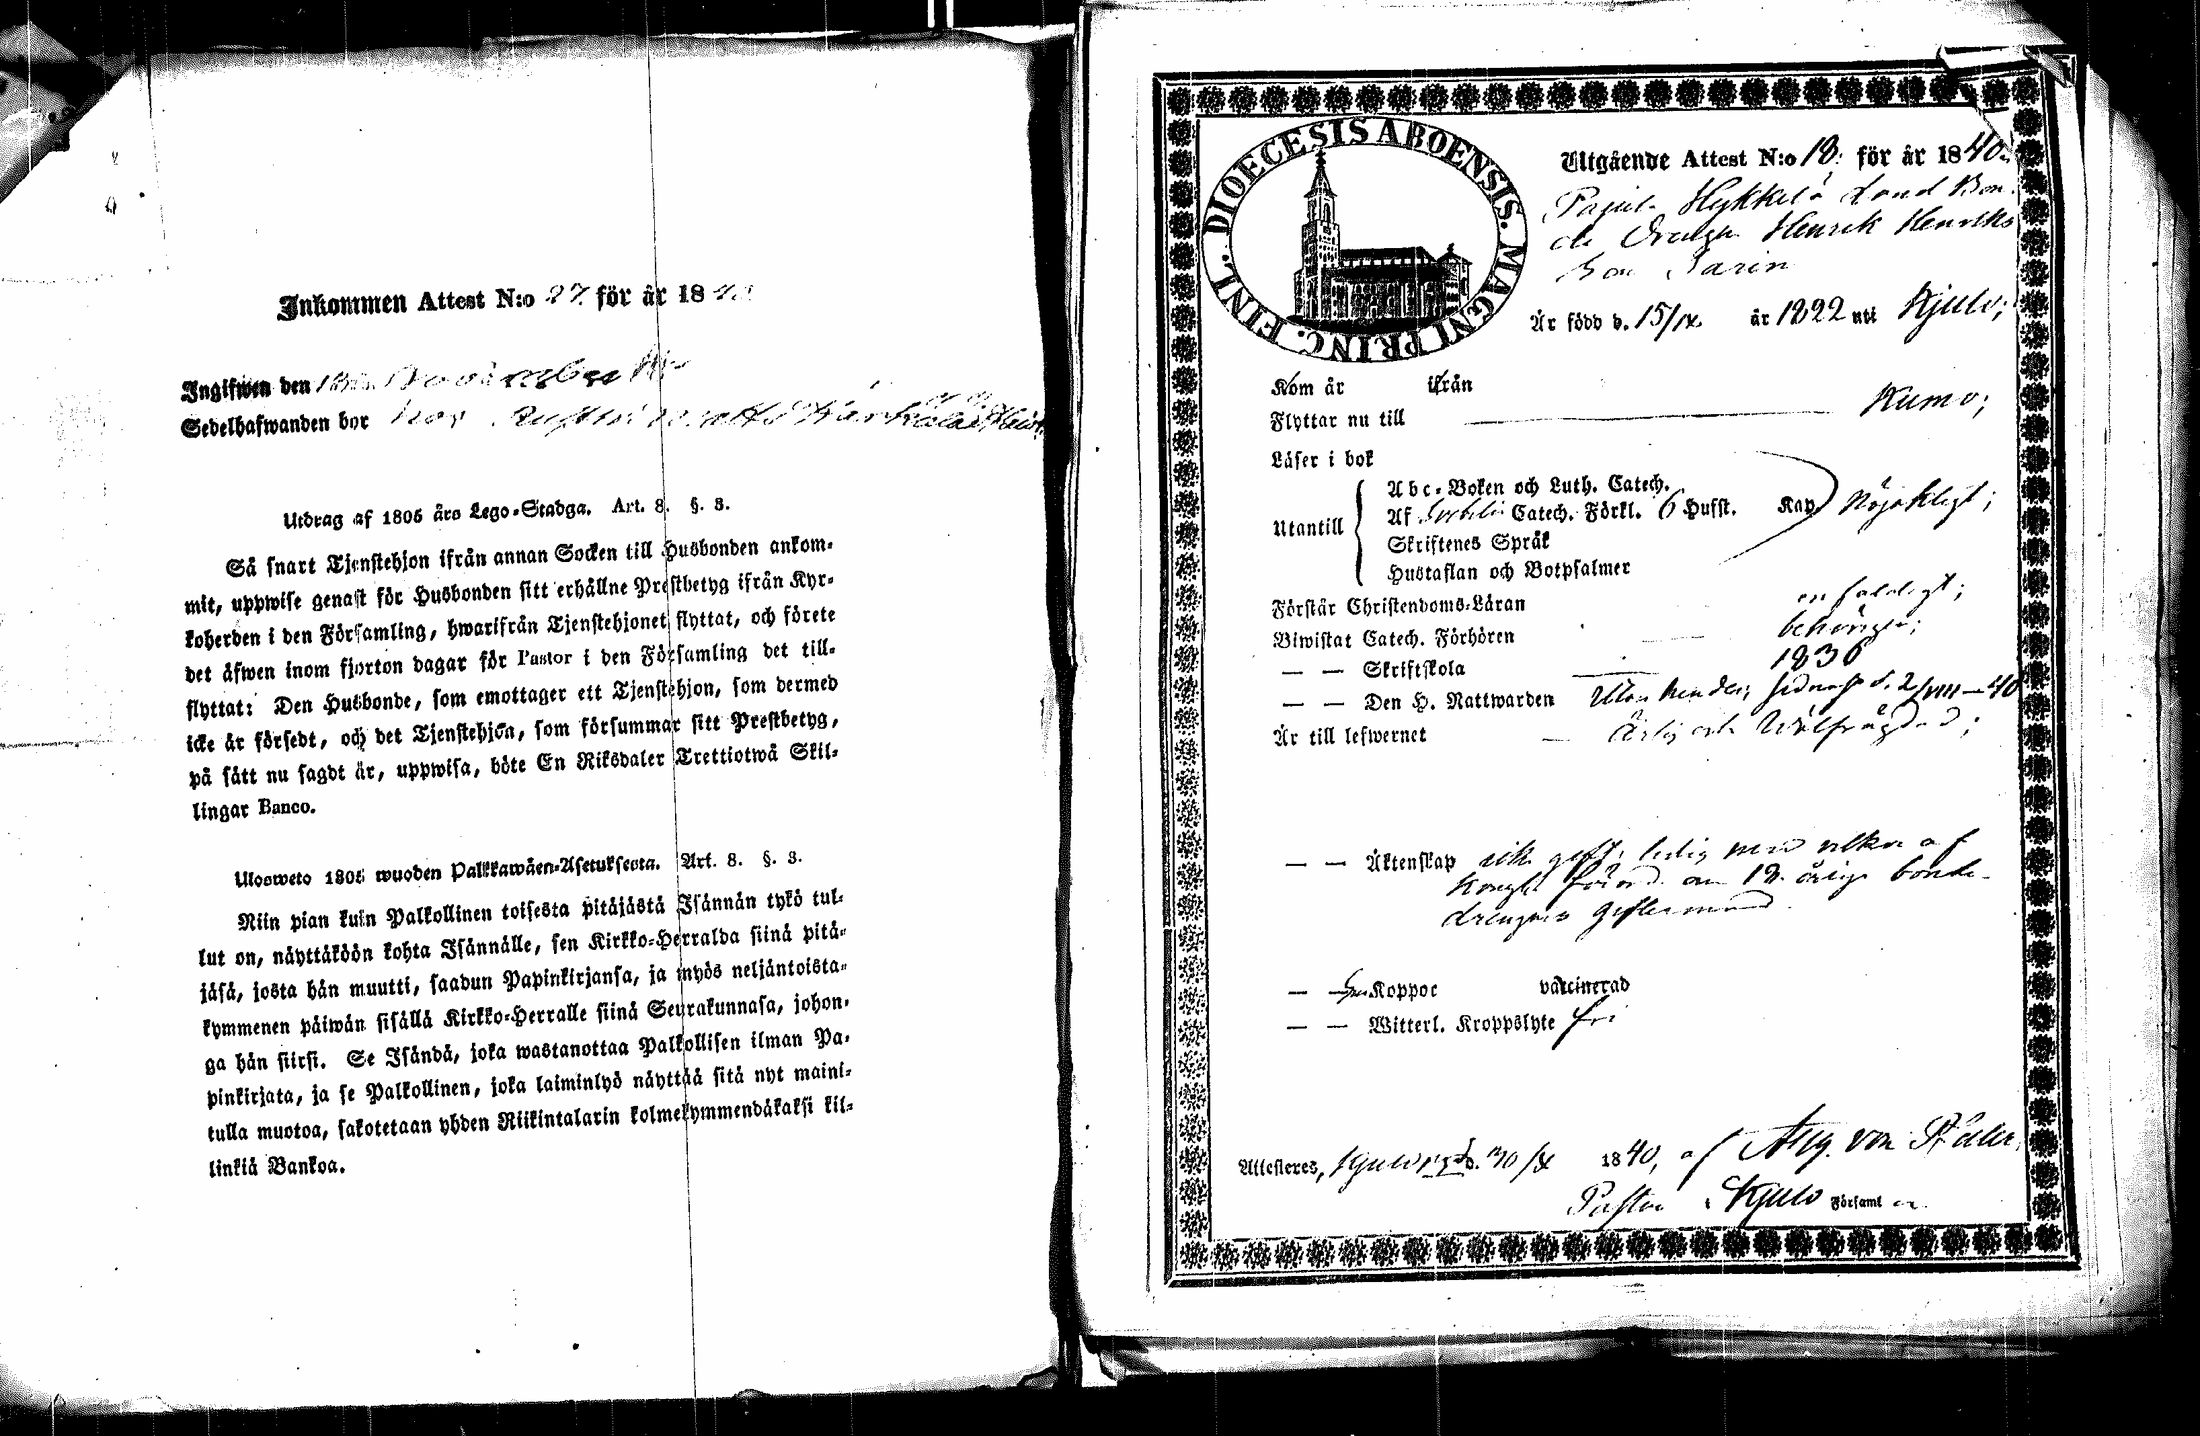 Inkommen Attest N:o 27. för år 184
Ingifwen den 18 November
Sedelhafwanden bor hos
Utdrag af 1805 års Lego-Stadga. Art. 8. §. 3.
Så snart Tjenstehjon ifrån annan Socken till Husbonden ankom-
mit, uppwise genast för Husbonden sitt erhållne Prestbetyg ifrån Kyr-
koherden i den Församling, hwarifrån Tjenstehjonet flyttat, och förete
det äfwen inom fjorton dagar för Pastor i den Församling det till-
flyttat: Den Husbonde, som emottager ett Tjenstehjon, som dermed
icke är försedt, och det Tjenstehjon, som försummar sitt Prestbetyg,
på sätt nu sagdt är, uppwisa, böte En Riksdaler Trettiotwå Skil-
lingar Banco.
Ulosweto 1805 wuoden Palkkawäen-Asetuksesta. Art. 8. §. 3.
Niin pian kuin Palkollinen toisesta pitäjästä Isännän tykö tul-
lut on, näyttäköön kohta Isännälle, sen Kirkko-Herralda siinä pitä-
jäsä, josta hän muutti, saadun Papinkirjansa, ja myös neljäntoista-
kymmenen päiwän sisällä Kirkko-Herralle siinä Seurakunnasa, johon-
ga hän siirsi. Se Isändä, joka wastanottaa Palkollisen ilman Pa-
pinkirjata, ja se Palkollinen, joka laiminlyö näyttää sitä nyt maini-
tulla muotoa, sakotetaan yhden Riikintalarin kolmekymmendäkaksi kil-
linkiä Bankoa.
DIOECESIS ABOENSIS. MAGNI PRINC. FINL.
Utgående Attest N:o 18. för år 1840.
Hykkilä Land Bon-
de Drängen Henrik Henriks
Son
Är född d. 15/IX. år 1822 uti Kjulo;
Kom år ifrån
Flyttar nu till Kumo;
Läser i bok
Abc-Boken och Luth. Catech.
Utantill Af Svebilii Catech. Förkl. 6 Hufst. Kap Nöjakligt;
Skriftenes Språk
Hustaflan och Botpsalmer
Förstår Christendoms-Läran enfaldigt;
Biwistat Catech. Förhören behörigen;
— — Skriftskola 1836
— — Den H. Nattwarden sednast d. 2/VIII—40
Är till lefwernet — Ärlig och Wälfrägdad;
— — Äktenskap icke gift, ledig med wilkor af
Kongl. förord. om 18. årige bonde-
drengars giftermål
— — Koppor vaccinerad
— — Witterl. Kroppslyte fri
Attesteras, Kjulo d. 30/X 1840, af Aug. von
Pastor i Kjulo Församl